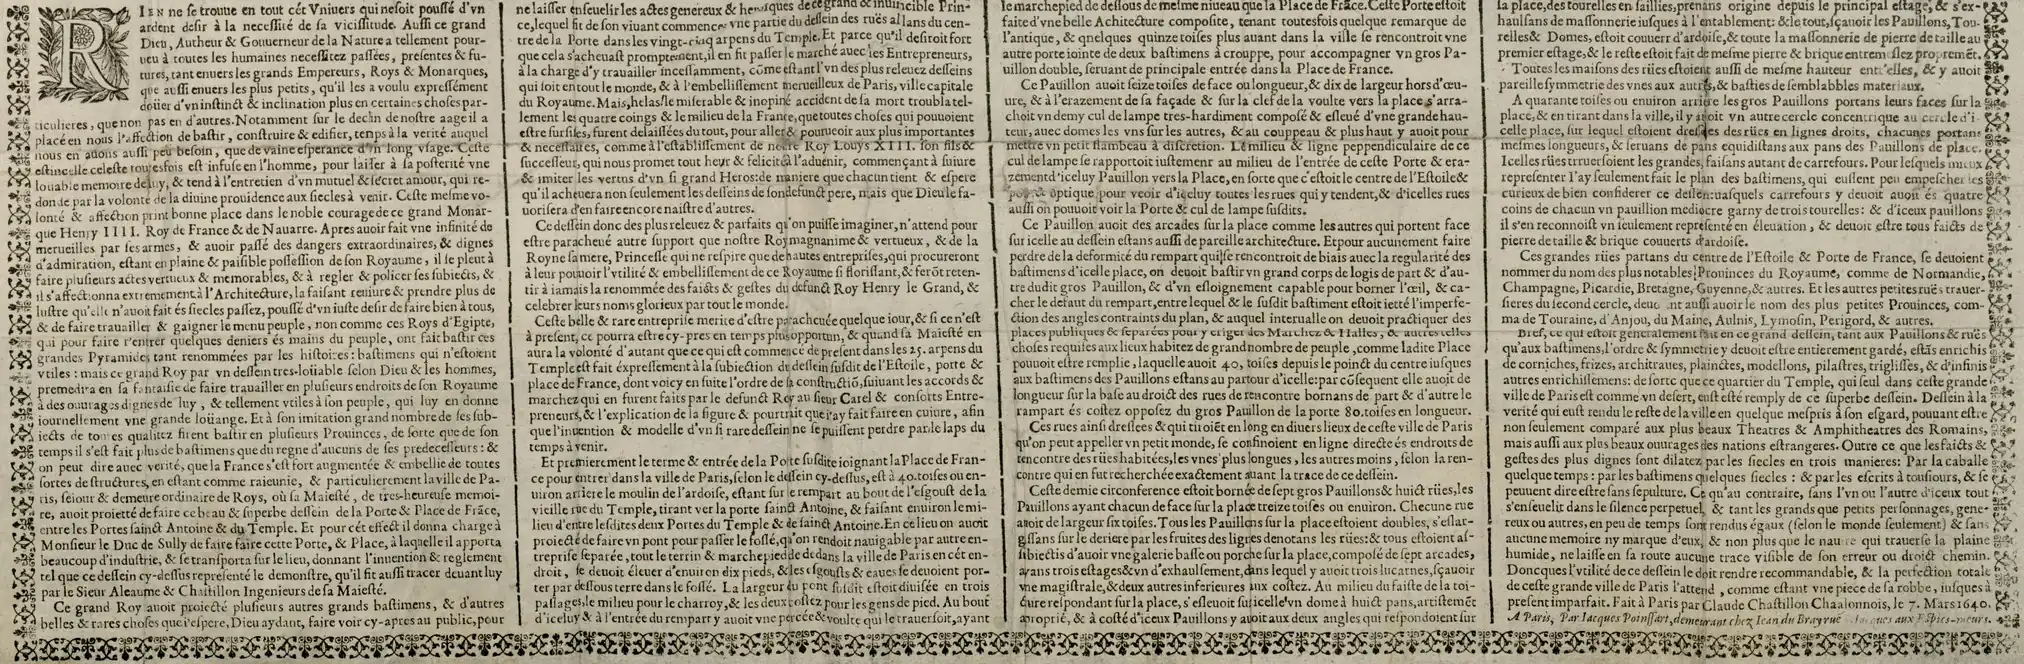 RIEN ne se trouue en tout cét Vniuers qui ne soit poussé d'vn
ardent desir à la necessité de sa vicissitude. Aussi ce grand
Dieu, Autheur & Gouuerneur de la Nature a tellement pour-
ueu à toutes les humaines necessitez passées, presentes & fu-
tures, tant enuers les grands Empereurs, Roys & Monarques,
que aussi enuers les plus petits, qu'il les a voulu expressément
doüer d'vn instinct & inclination plus en certaines choses par-
ticulieres, que non pas en d'autres. Notamment sur le declin de nostre aage il a
placé en nous l'affection de bastir, construire & edifier, temps à la verité auquel
nous en auons aussi peu besoin, que de vaine esperance d'vn long vsage. Ceste
estincelle celeste toutesfois est infuse en l'homme, pour laisser à sa posterité vne
loüable memoire de luy, & tend à l'entretien d'vn mutuel & secret amour, qui re-
donde par la volonté de la diuine prouidence aux siecles à venir. Ceste mesme vo-
lonté & affection print bonne place dans le noble courage de ce grand Monar-
que Henry IIII. Roy de France & de Nauarre. Apres auoir fait vne infinité de
merueilles par ses armes, & auoir passé des dangers extraordinaires, & dignes
d'admiration, estant en plaine & paisible possession de son Royaume, il se pleut à
faire plusieurs actes vertueux & memorables, & à regler & policer ses subiects, &
il s'affectionna extremement à l'Architecture, la faisant reuiure & prendre plus de
lustre qu'elle n'auoit fait és siecles passez, poussé d'vn iuste desir de faire bien à tous,
& de faire trauailler & gaigner le menu peuple, non comme ces Roys d'Egipte,
qui pour faire r'entrer quelques deniers és mains du peuple, ont fait bastir ces
grandes Pyramides tant renommées par les histoires: bastimens qui n'estoient
vtiles: mais ce grand Roy par vn dessein tres-loüable selon Dieu & les hommes,
premedita en sa fantaisie de faire trauailler en plusieurs endroits de son Royaume
à des ouurages dignes de luy, & tellement vtiles à son peuple, qui luy en donne
iournellement vne grande loüange. Et à son imitation grand nombre de ses sub-
iects de toutes qualitez firent bastir en plusieurs Prouinces, de sorte que de son
temps il s'est fait plus de bastimens que du regne d'aucuns de ses predecesseurs: &
on peut dire auec verité, que la France s'est fort augmentée & embellie de toutes
sortes de structures, en estant comme raieunie, & particulierement la ville de Pa-
ris, seiour & demeure ordinaire de Roys, où sa Maiesté, de tres-heureuse memoi-
re, auoit proietté de faire ce beau & superbe dessein de la Porte & Place de Frāce,
entre les Portes sainct Antoine & du Temple. Et pour cét effect il donna charge à
Monsieur le Duc de Sully de faire faire cette Porte, & Place, à laquelle il apporta
beaucoup d'industrie, & se transporta sur le lieu, donnant l'inuention & reglement
tel que ce dessein cy-dessus representé le demonstre, qu'il fit aussi tracer deuant luy
par le Sieur Aleaume & Chastillon Ingenieurs de sa Maiesté.
Ce grand Roy auoit proiecté plusieurs autres grands bastimens, & d'autres
belles & rares choses que i'espere, Dieu aydant, faire voir cy-apres au public, pour
ne laisser enseuelir les actes genereux & heroïques de ce grand & inuincible Prin-
ce, lequel fit de son viuant commencer vne partie du dessein des ruës allans du cen-
tre de la Porte dans les vingt-cinq arpens du Temple. Et parce qu'il desiroit fort
que cela s'acheuast promptement, il en fit passer le marché auec les Entrepreneurs,
à la charge d'y trauailler incessamment, cōme estant l'vn des plus releuez desseins
qui soit en tout le monde, & à l'embellissement merueilleux de Paris, ville capitale
du Royaume. Mais, helas! le miserable & inopiné accident de sa mort troubla tel-
lement les quatre coings & le milieu de la France, que toutes choses qui pouuoient
estre sursises, furent delaissées du tout, pour aller & pouruoir aux plus importantes
& necessaires, comme à l'establissement de nostre Roy Louys XIII. son fils &
successeur, qui nous promet tout heur & felicité à l'aduenir, commençant à suiure
& imiter les vertus d'vn si grand Heros: de maniere que chacun tient & espere
qu'il acheuera non seulement les desseins de son defunct pere, mais que Dieu le fa-
uorisera d'en faire encore naistre d'autres.
Ce dessein donc des plus releuez & parfaits qu'on puisse imaginer, n'attend pour
estre paracheué autre support que nostre Roy magnanime & vertueux, & de la
Royne sa mere, Princesse qui ne respire que de hautes entreprises, qui procureront
à leur pouuoir l'vtilité & embellissement de ce Royaume si florissant, & ferōt reten-
tir à iamais la renommée des faicts & gestes du defunct Roy Henry le Grand, &
celebrer leurs noms glorieux par tout le monde.
Ceste belle & rare entreprise merite d'estre paracheuée quelque iour, & si ce n'est
à present, ce pourra estre cy-pres en temps plus opportun, & quand sa Maiesté en
aura la volonté d'autant que ce qui est commencé de present dans les 25. arpens du
Temple est fait expressement à la subiection du dessein susdit de l'Estoile, porte &
place de France, dont voicy en suite l'ordre de sa constructiō, suiuant les accords &
marchez qui en furent faits par le defunct Roy au sieur Carel & consorts Entre-
preneurs, & l'explication de la figure & pourtrait que i'ay fait faire en cuiure, afin
que l'inuention & modelle d'vn si rare dessein ne se puissent perdre par le laps du
temps à venir.
Et premierement le terme & entrée de la Porte susdite ioignant la Place de Fran-
ce pour entrer dans la ville de Paris, selon le dessein cy-dessus, est à 40. toises ou en-
uiron arriere le moulin de l'ardoise, estant sur le rempart au bout de l'esgoust de la
vieille ruë du Temple, tirant ver la porte sainct Antoine, & faisant enuiron le mi-
lieu d'entre lesdites deux Portes du Temple & de sainct Antoine. En ce lieu on auoit
proiecté de faire vn pont pour passer le fossé, qu'on rendoit nauigable par autre en-
treprise separée, tout le terrin & marchepied de dedans la ville de Paris en cét en-
droit, se deuoit éleuer d'enuiron dix pieds, & les esgousts & eaues se deuoient por-
ter par dessous terre dans le fossé. La largeur du pont susdit estoit diuisée en trois
passages, le milieu pour le charroy, & les deux costez pour les gens de pied. Au bout
d'iceluy & à l'entrée du rempart y auoit vne percée & voulte qui le trauersoit, ayant
le marchepied de dessous de mesme niueau que la Place de Frāce. Ceste Porte estoit
faite d'vne belle Achitecture composite, tenant toutesfois quelque remarque de
l'antique, & quelques quinze toises plus auant dans la ville se rencontroit vne
autre porte iointe de deux bastimens à crouppe, pour accompagner vn gros Pa-
uillon double, seruant de principale entrée dans la Place de France.
Ce Pauillon auoit seize toises de face ou longueur, & dix de largeur hors d'œu-
ure, & à l'erazement de sa façade & sur la clef de la voulte vers la place s'arra-
choit vn demy cul de lampe tres-hardiment composé & esleué d'vne grande hau-
teur, auec domes les vns sur les autres, & au couppeau & plus haut y auoit pour
mettre vn petit flambeau à discretion. Le milieu & ligne peppendiculaire de ce
cul de lampe se rapportoit iustement au milieu de l'entrée de ceste Porte & era-
zement d'iceluy Pauillon vers la Place, en sorte que c'estoit le centre de l'Estoile &
optique pour veoir d'iceluy toutes les rues qui y tendent, & d'icelles rues
aussi on pouuoit voir la Porte & cul de lampe susdits.
Ce Pauillon auoit des arcades sur la place comme les autres qui portent face
sur icelle au dessein estans aussi de pareille architecture. Et pour aucunement faire
perdre de la deformité du rempart qui se rencontroit de biais auec la regularité des
bastimens d'icelle place, on deuoit bastir vn grand corps de logis de part & d'au-
tre dudit gros Pauillon, & d'vn esloignement capable pour borner l'œil, & ca-
cher le defaut du rempart, entre lequel & le susdit bastiment estoit ietté l'imperfe-
ction des angles contraints du plan, & auquel interualle on deuoit practiquer des
places publiques & separées pour y eriger des Marchez & Halles, & autres telles
choses requises aux lieux habitez de grand nombre de peuple, comme ladite Place
pouuoit estre remplie, laquelle auoit 40, toises depuis le poinct du centre iusques
aux bastimens des Pauillons estans au partour d'icelle: par cōsequent elle auoit de
longueur sur la base au droict des rues de rencontre bornans de part & d'autre le
rampart és costez opposez du gros Pauillon de la porte 80. toises en longueur.
Ces rues ainsi dressées & qui tiroiēt en long en diuers lieux de ceste ville de Paris
qu'on peut appeller vn petit monde, se confinoient en ligne directe és endroits de
rencontre des rües habitées, les vnes plus longues, les autres moins, selon la ren-
contre qui en fut recherchée exactement auant la trace de ce dessein.
Ceste demie circonference estoit bornée de sept gros Pauillons & huict rües, les
Pauillons ayant chacun de face sur la place treize toises ou enuiron. Checune rue
auoit de largeur six toises. Tous les Pauillons sur la place estoient doubles, s'eslar-
gissans sur le deriere par les fruites des lignes denotans les rües: & tous estoient as-
subiectis d'auoir vne galerie basse ou porche sur la place, composé de sept arcades,
ayans trois estages & vn d'exhaulsement, dans lequel y auoit trois lucarnes, sçauoir
vne magistrale, & deux autres inferieures aux costez. Au milieu du faiste de la toi-
cture respondant sur la place, s'esleuoit sur icelle vn dome à huict pans, artistemēt
aproprié, & à costé d'iceux Pauillons y auoit aux deux angles qui respondoient sur
la place, des tourelles en saillies, prenans origine depuis le principal estage, & s'ex-
haulsans de massonnerie iusques à l'entablement: & le tout, sçauoir les Pauillons, Tou-
relles & Domes, estoit couuert d'ardoise, & toute la massonnerie de pierre de taille au
premier estage, & le reste estoit fait de mesme pierre & brique entremeslez proprement.
Toutes les maisons des rües estoient aussi de mesme hauteur entr'elles, & y auoit
pareille symmetrie des vnes aux autres, & basties de semblabbles materiaux.
A quarante toises ou enuiron arriere les gros Pauillons portans leurs faces sur la
place, & en tirant dans la ville, il y auoit vn autre cercle concentrique au cercle d'i-
celle place, sur lequel estoient dressées des rües en lignes droits, chacunes portans
mesmes longueurs, & seruans de pans equidistans aux pans des Pauillons de place.
Icelles rües trauersoient les grandes, faisans autant de carrefours. Pour lesquels mieux
representer l'ay seulement fait le plan des bastimens, qui eussent peu empescher les
curieux de bien considerer ce dessein: ausquels carrefours y deuoit auoir és quatre
coins de chacun vn pauillion mediocre garny de trois tourelles: & d'iceux pauillons
il s'en reconnoist vn seulement representé en éleuation, & deuoit estre tous faicts de
pierre de taille & brique couuerts d'ardoise.
Ces grandes rües partans du centre de l'Estoile & Porte de France, se deuoient
nommer du nom des plus notables Prouinces du Royaume, comme de Normandie,
Champagne, Picardie, Bretagne, Guyenne, & autres. Et les autres petites ruës trauer-
sieres du second cercle, deuoient aussi auoir le nom des plus petites Prouinces, com-
ma de Touraine, d'Anjou, du Maine, Aulnis, Lymosin, Perigord, & autres.
Bref, ce qui estoit generalement fait en ce grand dessein, tant aux Pauillons & ruës
qu'aux bastimens, l'ordre & symmetrie y deuoit estre entierement gardé, estās enrichis
de corniches, frizes, architraues, plainctes, modellons, pilastres, triglisses, & d'infinis
autres enrichissemens: de sorte que ce quartier du Temple, qui seul dans ceste grande
ville de Paris est comme vn desert, eust esté remply de ce superbe dessein. Dessein à la
verité qui eust rendu le reste de la ville en quelque mespris à son esgard, pouuant estre
non seulement comparé aux plus beaux Theatres & Amphitheatres des Romains,
mais aussi aux plus beaux ouurages des nations estrangeres. Outre ce que les faicts &
gestes des plus dignes sont dilatez par les siecles en trois manieres: Par la caballe
quelque temps: par les bastimens quelques siecles: & par les escrits à tousiours, & se
peuuent dire estre sans sepulture. Ce qu'au contraire, sans l'vn ou l'autre d'iceux tout
s'enseuelit dans le silence perpetuel, & tant les grands que petits personnages, gene-
reux ou autres, en peu de temps sont rendus égaux (selon le monde seulement) & sans
aucune memoire ny marque d'eux, & non plus que le nauire qui trauerse la plaine
humide, ne laisse en sa route aucune trace visible de son erreur ou droict chemin.
Doncques l'vtilité de ce dessein le doit rendre recommandable, & la perfection totale
de ceste grande ville de Paris l'attend, comme estant vne piece de sa robbe, iusques à
present imparfait. Fait à Paris par Claude Chastillon Chaalonnois, le 7. Mars 1640.
A Paris, Par Iacques Poinssart, demeurant chez Iean du Bray ruë Iacques aux Espics-meurs.